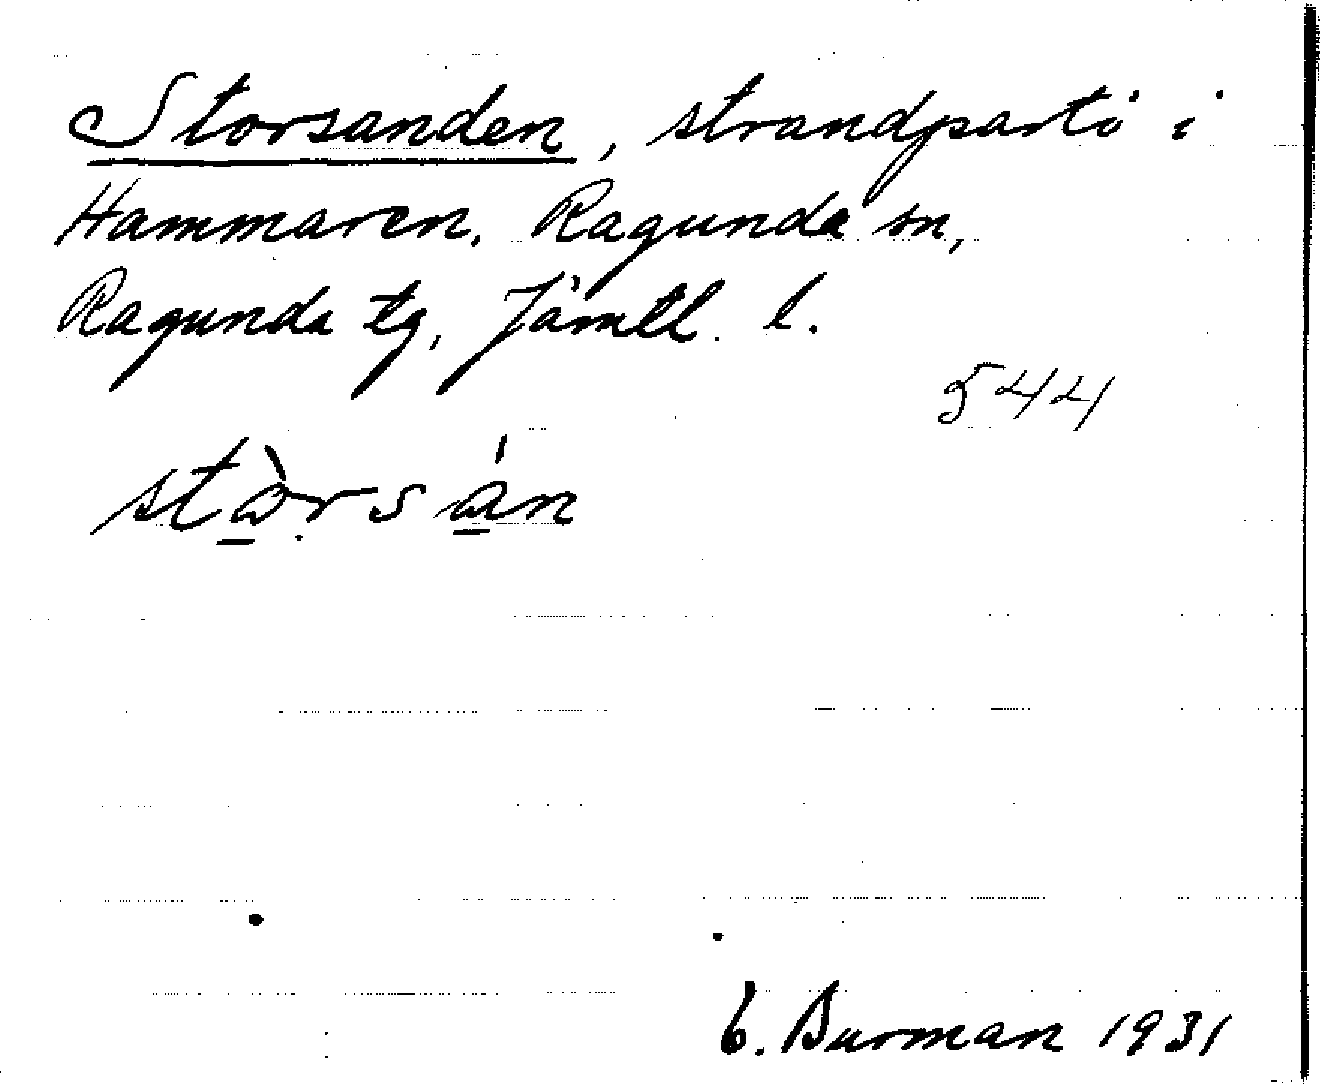 Storsanden, strandparti i
Hammaren, Ragunda sn,
Ragunda tg, Jämtl. l.
544
stà̱rṣá̱n
C. Burman 1931